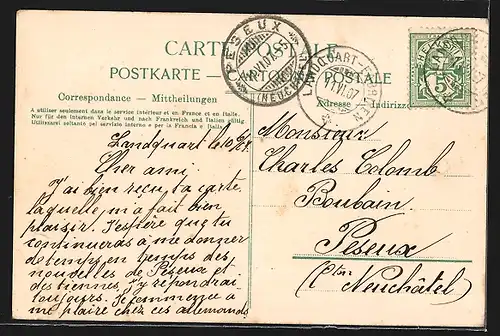 CARTE POSTALE
POSTKARTE — CARTOLINA POSTALE
Correspondance — Mittheilungen
Adresse — Indirizzo
A utiliser seulement dans le service intérieur et en France et en Italie.
Nur für den internen Verkehr und nach Frankreich und Italien gültig
Utilizzarsi soltanto pel servizio interno e per la Francia e l'Italia.
PESEUX
(NEUCHÂTEL)
LANDQUART
11.VI.07
HELVETIA
5
Landquart le 10/6 07.
Cher ami.
J'ai bien reçu ta carte
laquelle m'a fait bien
plaisir. J'espère que tu
continueras à me donner
de temps en temps des
nouvelles de Peseux et
des tiennes. J'y répondrai
toujours. Je commence a
me plaire chez ces allemands
Monsieur
Charles Colomb.
Boubain.
Peseux
(Ctn Neuchâtel)